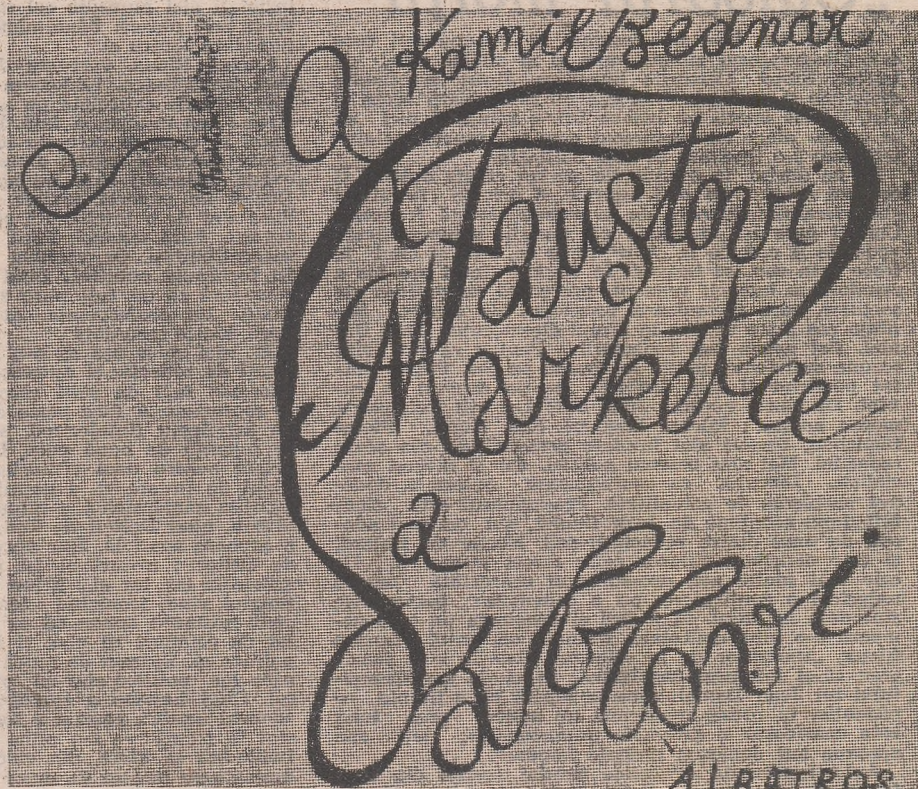 Kamil Bednář
O
Faustovi
Markétce
a
Ďáblovi
ALBATROS